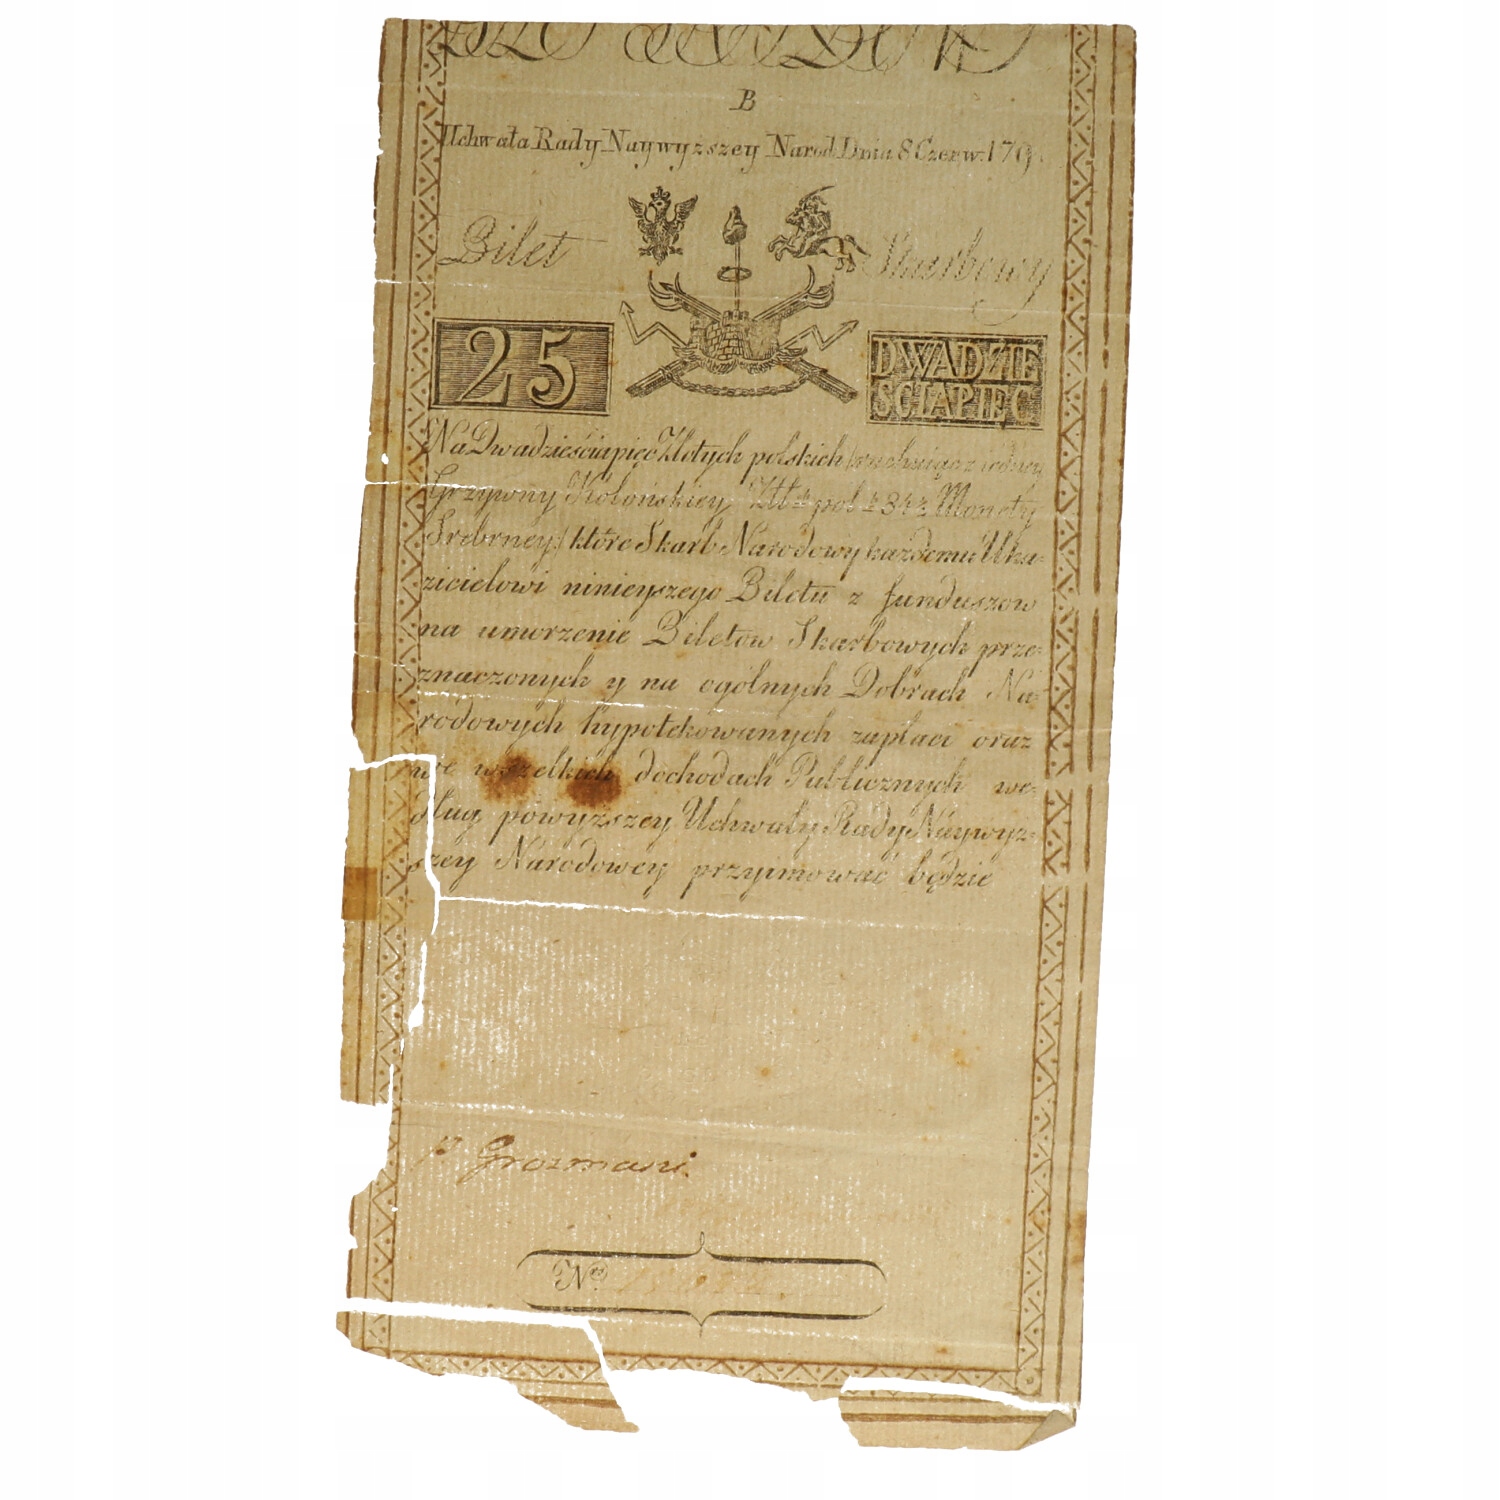 B
Uchwała Rady Naywyższey Narod. Dnia 8 Czerw. 179
Bilet Skarbowy
25
DWADZIE
SCIAPIĘC
Na Dwadzieściapięć Złotych polskich /rachuiąc z iedney
Grzywny Kolońskiey Złł pol 84½ Monety
Srebrney/ które Skarb Narodowy każdemu Uka-
zicielowi ninieyszego Biletu z funduszow
na umorzenie Biletow Skarbowych prze-
znaczonych y na ogólnych Dobrach Na-
rodowych hypotekowanych zapłaci oraz
we wszelkich dochodach Publicznych we-
dług powyższey Uchwały Rady Naywyż-
szey Narodowey przyimować będzie
p Grozmani
Nro